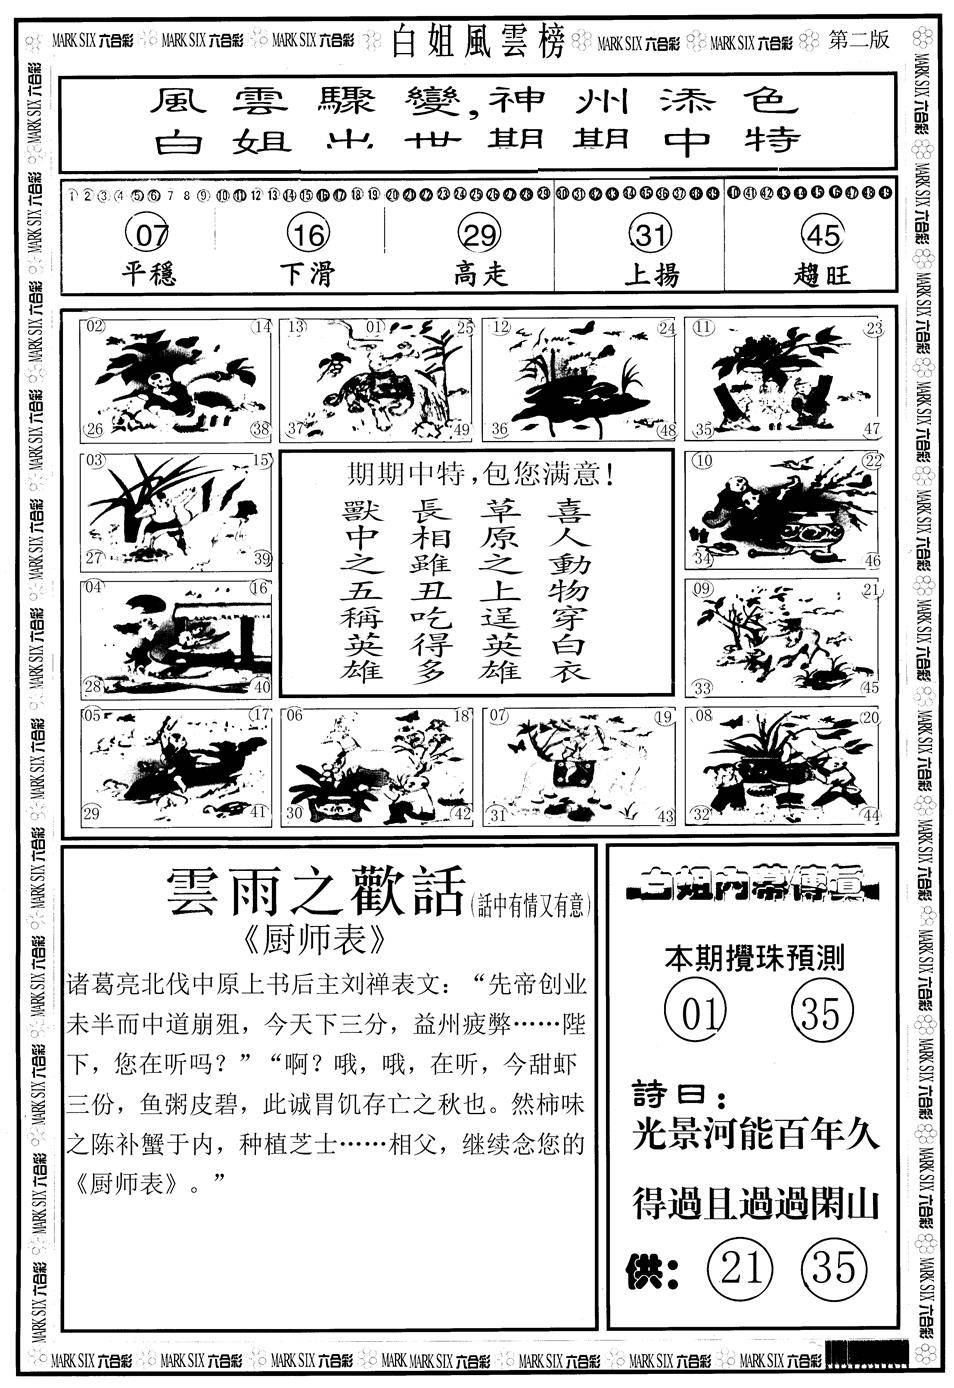 MARK SIX 六合彩 MARK SIX 六合彩 MARK SIX 六合彩 白姐風雲榜 MARK SIX 六合彩 MARK SIX 六合彩 第二版
風雲驟變,神州添色
白姐出世期期中特
1 2 3 4 5 6 7 8 9 10 11 12 13 14 15 16 17 18 19 20 21 22 23 24 25 26 27 28 29 30 31 32 33 34 35 36 37 38 39 40 41 42 43 44 45 46 47 48 49
07 16 29 31 45
平穩 下滑 高走 上揚 趨旺
02 14 13 01 25 12 24 11 23
26 38 37 49 36 48 35 47
03 15 10 22
27 39 34 46
04 16 09 21
28 40 33 45
05 17 06 18 07 19 08 20
29 41 30 42 31 43 32 44
期期中特,包您满意!
喜人動物穿白衣
草原之上逞英雄
長相雖丑吃得多
獸中之五稱英雄
雲雨之歡話(話中有情又有意)
《厨师表》
诸葛亮北伐中原上书后主刘禅表文：“先帝创业
未半而中道崩殂，今天下三分，益州疲弊……陛
下，您在听吗？”“啊？哦，哦，在听，今甜虾
三份，鱼粥皮碧，此诚胃饥存亡之秋也。然柿味
之陈补蟹于内，种植芝士……相父，继续念您的
《厨师表》。”
白姐内幕傳真
本期攪珠預測
01 35
詩曰：
光景河能百年久
得過且過過閑山
供：21 35
MARK SIX 六合彩 MARK SIX 六合彩 MARK SIX 六合彩 MARK MARK SIX 六合彩 MARK SIX 六合彩 MARK SIX 六合彩 MARK SIX 六合彩